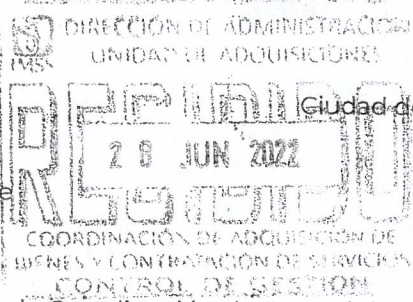 DIRECCIÓN DE ADMINISTRACIÓN
UNIDAD DE ADQUISICIONES
IMSS
RECIBIDO
Ciudad d
28 JUN 2022
COORDINACIÓN DE ADQUISICIÓN DE
BIENES Y CONTRATACIÓN DE SERVICIOS
CONTROL DE GESTIÓN